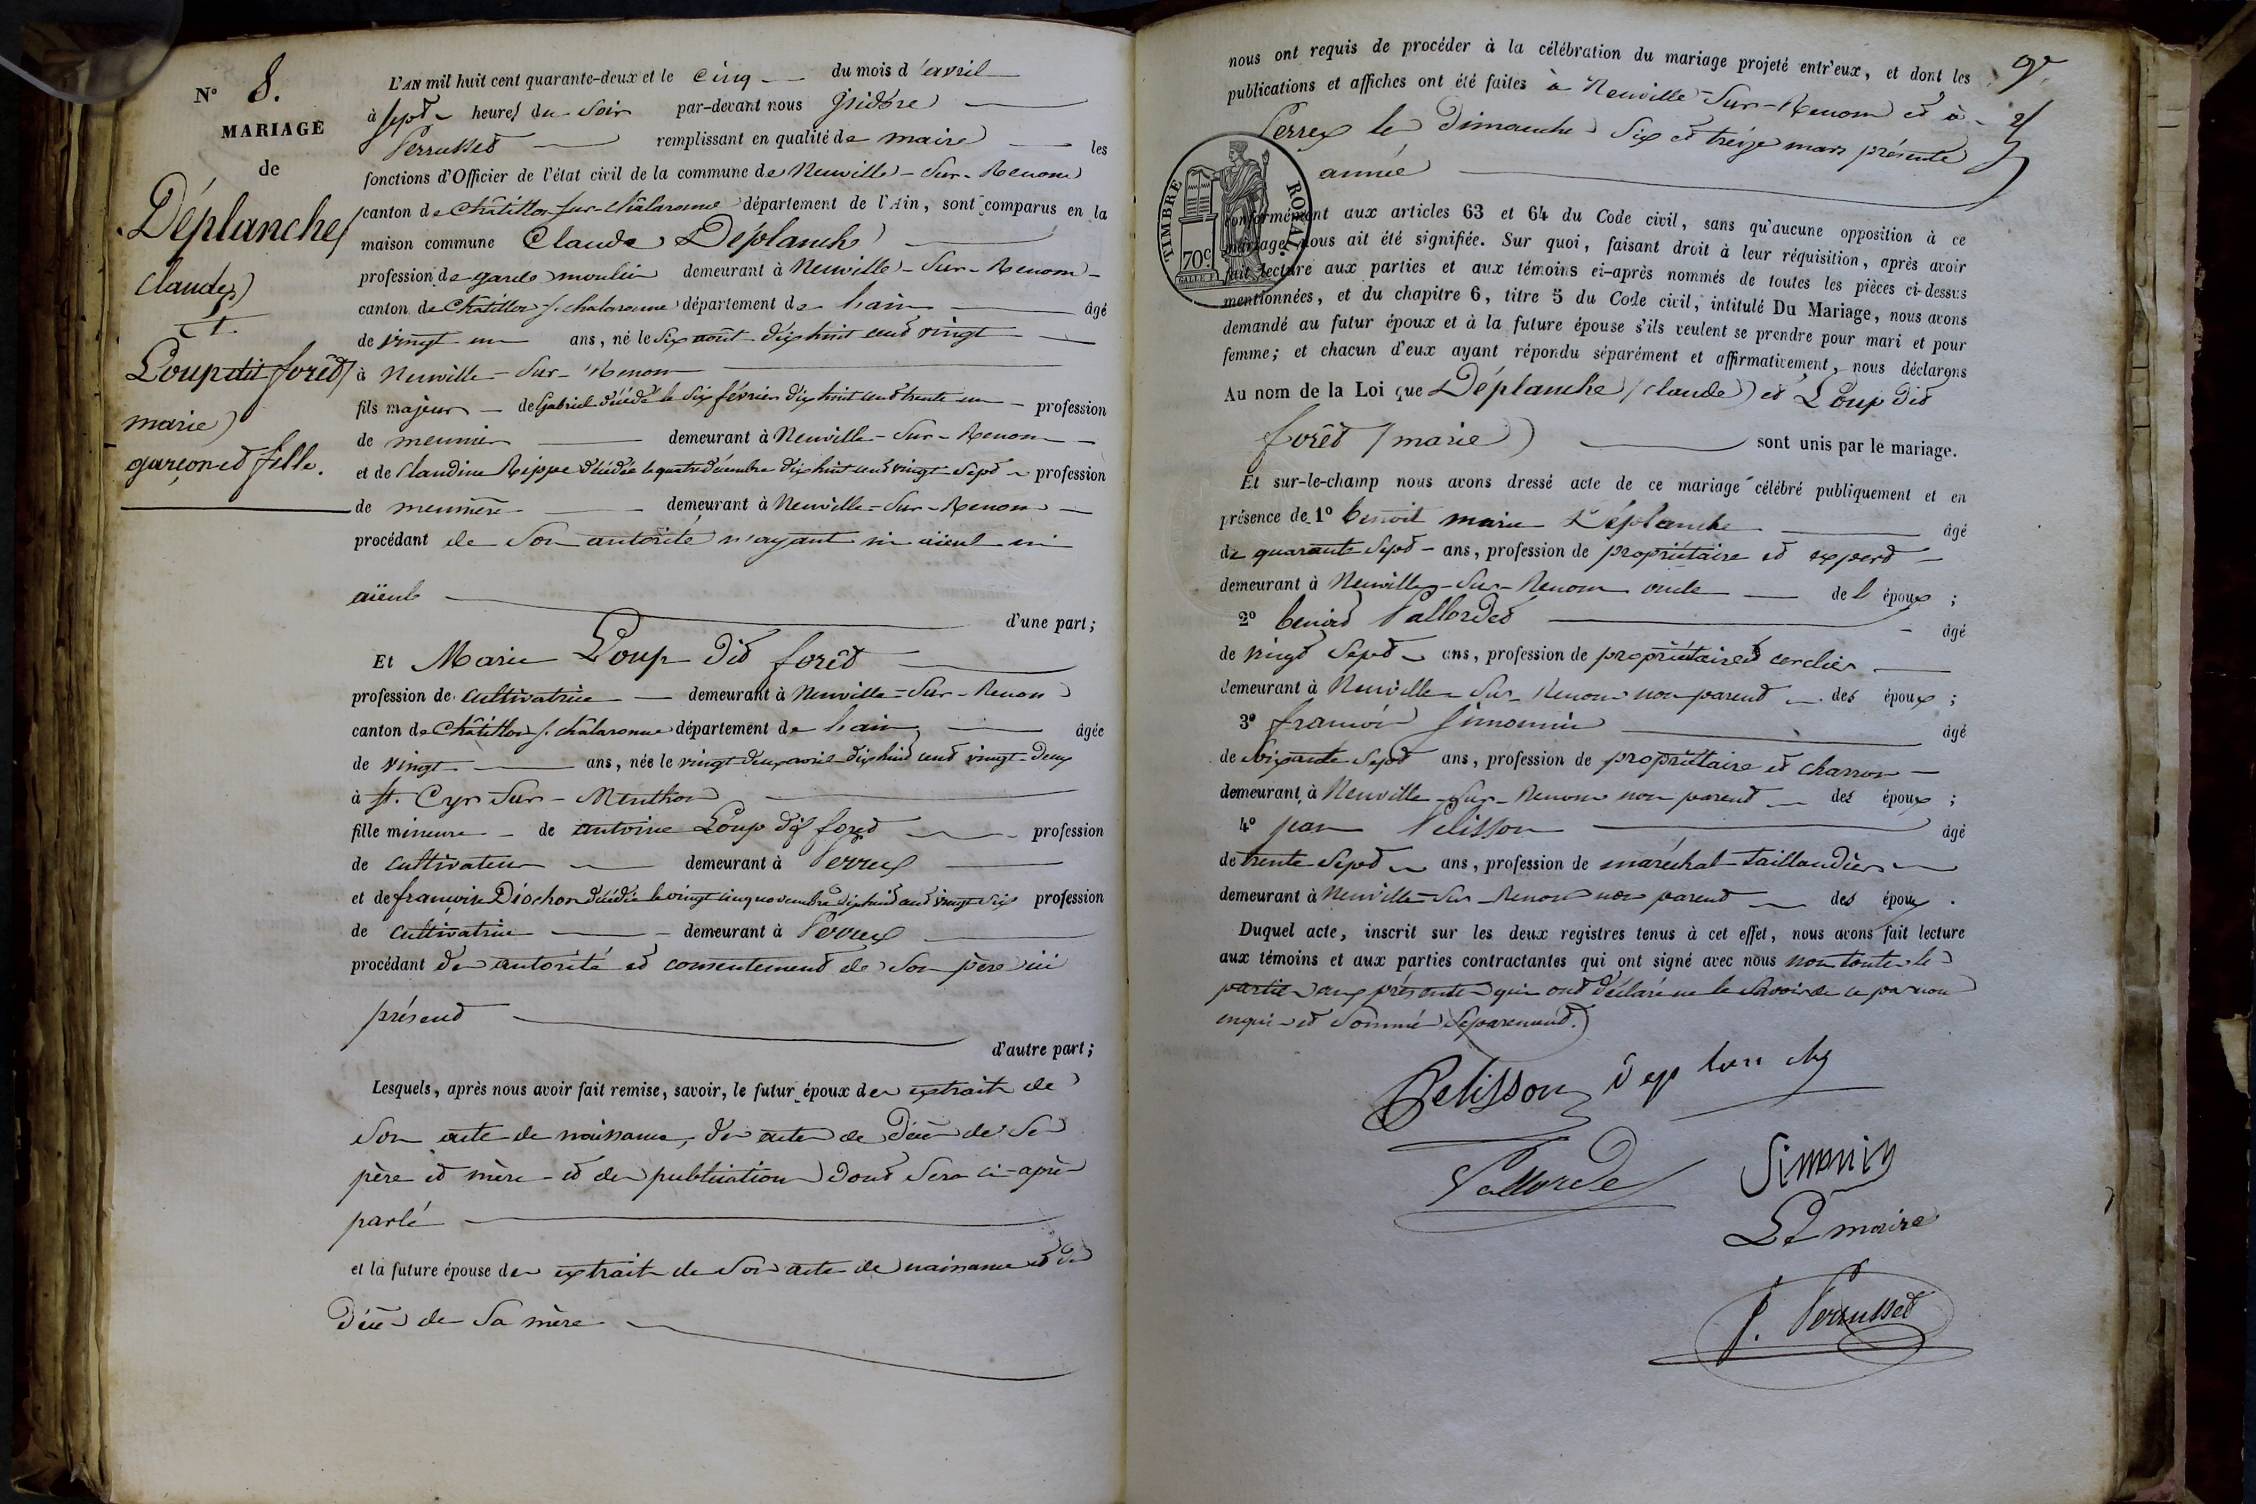 N° 8.
MARIAGE
de
Déplanche
Claude
Et
Loup dit forêt
marie
garçon et fille.
L'AN mil huit cent quarante-deux et le cinq du mois d'avril
à sept heures du soir par-devant nous Isidore
Perrusset remplissant en qualité de maire les
fonctions d'Officier de l'état civil de la commune de Neuville-Sur-Renom
canton de Châtillon-sur-Châlaronne département de l'Ain, sont comparus en la
maison commune Claude Déplanche
profession de garde moulin demeurant à Neuville-Sur-Renom
canton de Châtillon s. chalaronne département de l'ain âgé
de vingt un ans, né le six août dix huit cent vingt
à Neuville-Sur-Renom
fils majeur de Gabriel décédé le six février dix huit cent trente un profession
de meunier demeurant à Neuville-Sur-Renom
et de Claudine Rippe décédée le quatre décembre dix huit cent vingt sept profession
de meunière demeurant à Neuville-Sur-Renom
procédant de son autorité n'ayant ni aïeul ni
aïeule
d'une part;
Et Marie Loup dit forêt
profession de cultivatrice demeurant à Neuville-Sur-Renom
canton de Châtillon s. châlaronne département de l'ain âgée
de vingt ans, née le vingt deux avril dix huit cent vingt-deux
à St. Cyr Sur-Menthon
fille mineure de antoine Loup dit forêt profession
de cultivateur demeurant à Perrex
et de françoise Diochon décédée le vingt cinq novembre dix huit cent vingt six profession
de cultivatrice demeurant à Perrex
procédant de autorité et consentement de son père ici
présent
d'autre part;
Lesquels, après nous avoir fait remise, savoir, le futur époux des extraits de
son acte de naissance, des actes de décès de ses
père et mère et des publications dont sera ci-après
parlé
et la future épouse des extraits de son acte de naissance et de
décès de sa mère
nous ont requis de procéder à la célébration du mariage projeté entr'eux, et dont les
publications et affiches ont été faites à Neuville-Sur-Renom et à
Perrex les Dimanches six et treize mars présente
année
TIMBRE ROYAL.
70 c.
conformément aux articles 63 et 64 du Code civil, sans qu'aucune opposition à ce
mariage nous ait été signifiée. Sur quoi, faisant droit à leur réquisition, après avoir
fait lecture aux parties et aux témoins ci-après nommés de toutes les pièces ci-dessus
mentionnées, et du chapitre 6, titre 5 du Code civil, intitulé Du Mariage, nous avons
demandé au futur époux et à la future épouse s'ils veulent se prendre pour mari et pour
femme; et chacun d'eux ayant répondu séparément et affirmativement, nous déclarons
Au nom de la Loi que Déplanche (Claude) et Loup dit
forêt (marie) sont unis par le mariage.
Et sur-le-champ nous avons dressé acte de ce mariage célébré publiquement et en
présence de 1° benoit marie Déplanche âgé
de quarante sept ans, profession de propriétaire et expert
demeurant à Neuville-Sur-Renom oncle de l'époux;
2° benoit Pallordet âgé
de vingt sept ans, profession de propriétaire et cerclier
demeurant à Neuville-Sur-Renom non parent des époux;
3° françois Simonin âgé
de soixante sept ans, profession de propriétaire et charron
demeurant à Neuville-Sur-Renom non parent des époux;
4° jean Pelisson âgé
de trente sept ans, profession de maréchal taillandier
demeurant à Neuville-Sur-Renom non parent des époux.
Duquel acte, inscrit sur les deux registres tenus à cet effet, nous avons fait lecture
aux témoins et aux parties contractantes qui ont signé avec nous non toutes les
parties aux présentes qui ont déclaré ne le savoir de ce par nous
enquis et sommés séparement.
Pelisson deplanche
Pallorde Simonin
Le maire
J. Perrusset